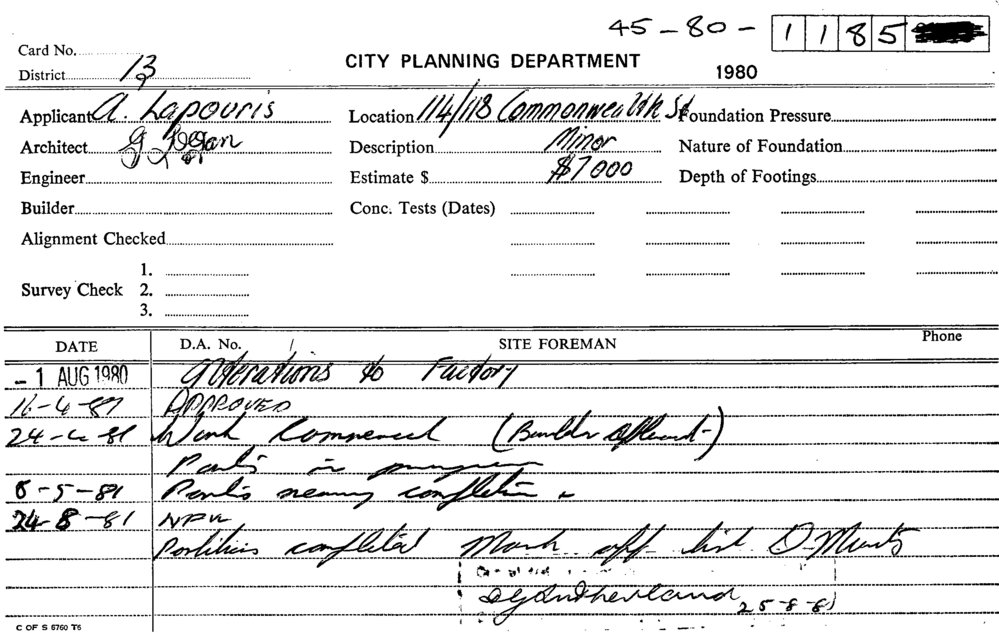 45-80- 1185
Card No.
CITY PLANNING DEPARTMENT
1980
District 13
Applicant A. Lapouris Location 114/118 Commonwealth St Foundation Pressure
Architect G Description Minor Nature of Foundation
Engineer Estimate $ $7000 Depth of Footings
Builder Conc. Tests (Dates)
Alignment Checked
1.
Survey Check 2.
3.
DATE D.A. No. SITE FOREMAN Phone
-1 AUG 1980 Alterations to Factory
16-4-81 APPROVED
24-4-81 Work Commenced (Builder )
in progress
8-5-81 nearing completion
24-8-81 NPW
Partitions completed Mark off list D.
Sutherland 25-8-81
C OF S 6760 T6